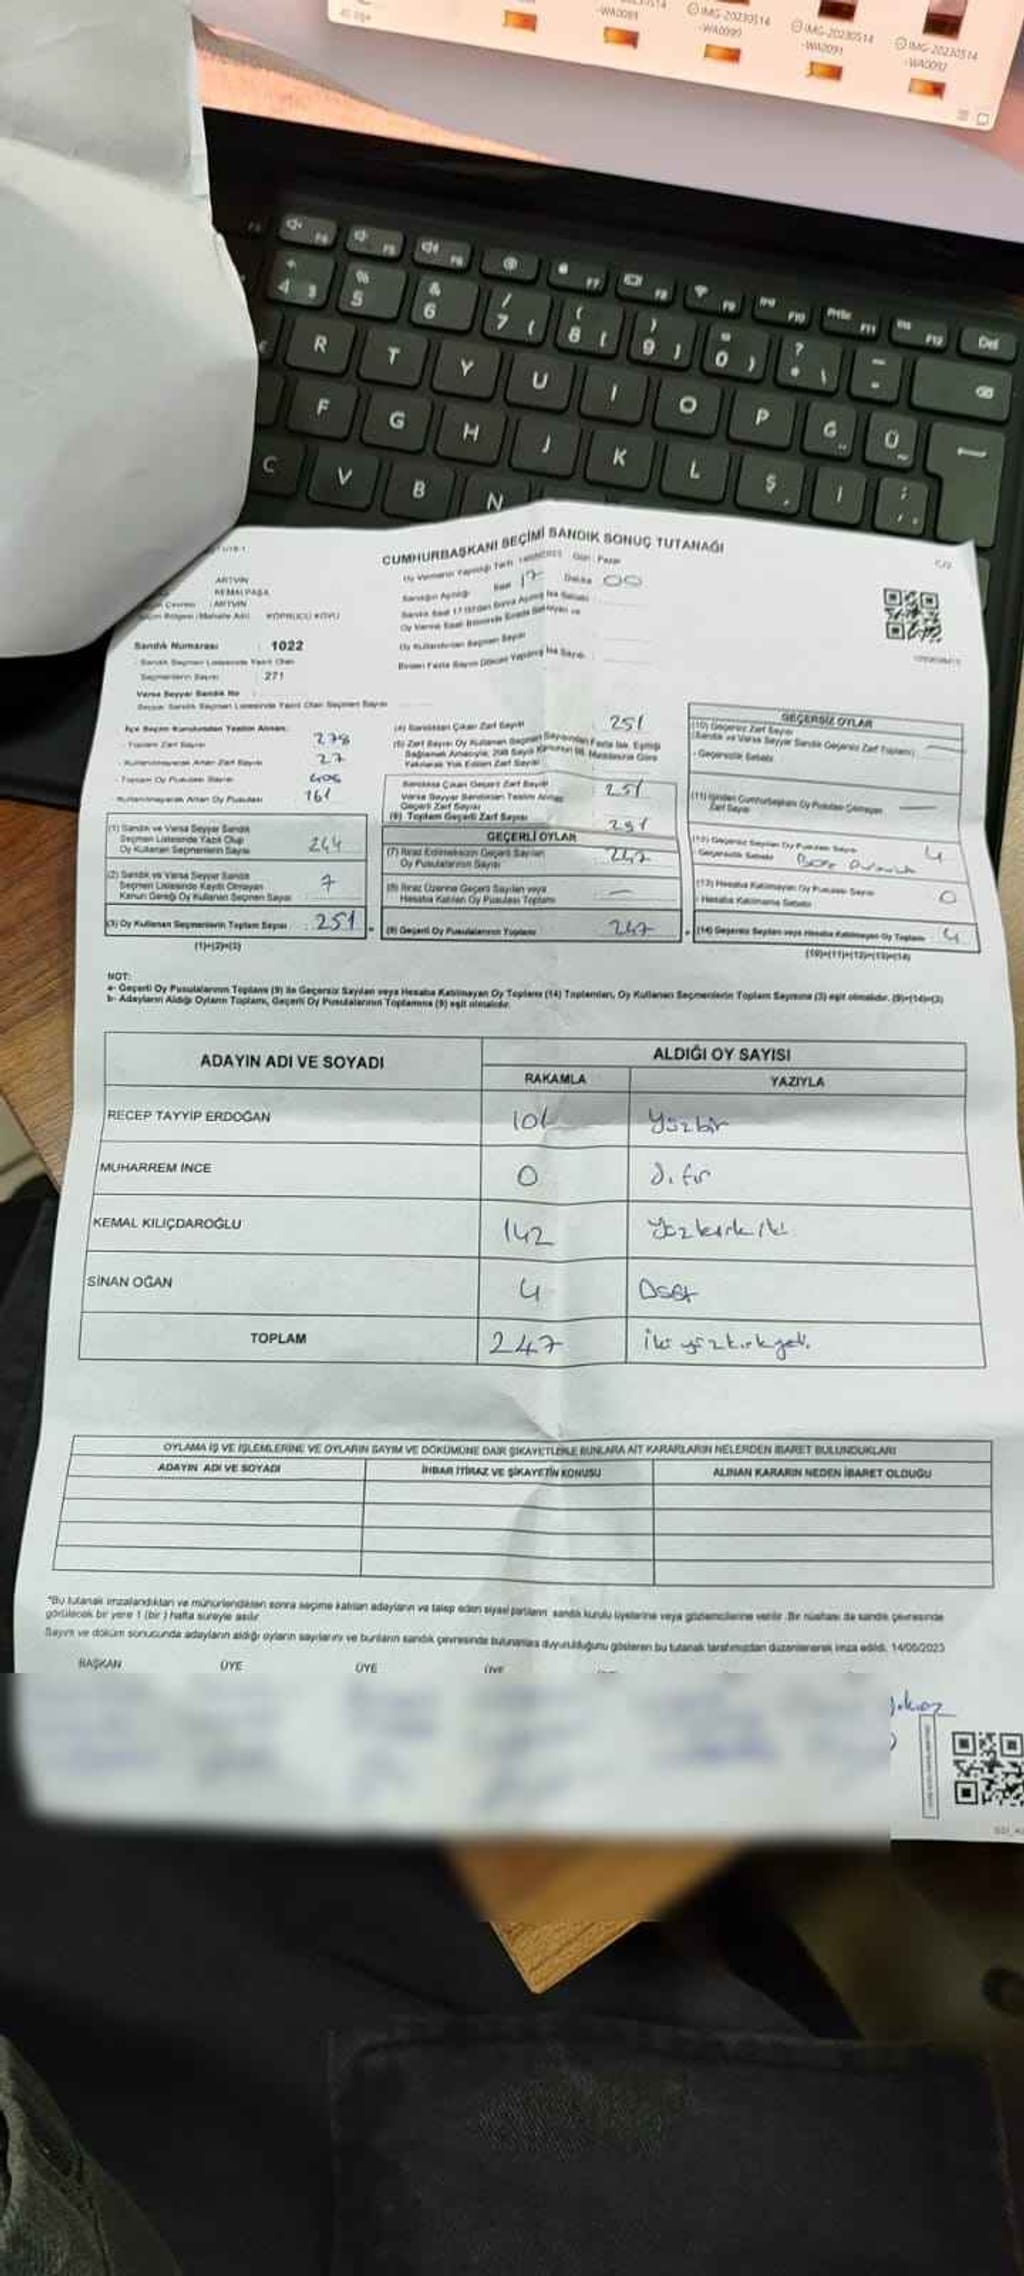 -WA0089
IMG-20230514
-WA0090
IMG-20230514
-WA0091
IMG-20230514
-WA0092
F7 F8 F9 F10 PrtSc F11 Ins F12 Del
4 $ % 5 & 6 / 7 { ( 8 [ ) 9 ] = 0 } ? * \ - _
R T Y U I O P Ğ Ü
F G H J K L Ş İ ;
C V B N
CUMHURBAŞKANI SEÇİMİ SANDIK SONUÇ TUTANAĞI
C/2
Gün : Pazar
ARTVİN
KEMALPAŞA
ARTVİN
KÖPRÜCÜ KÖYÜ
Saat 17 Dakika 00
Sandık Numarası : 1022
Sandık Seçmen Listesinde Yazılı Olan
Seçmenlerin Sayısı : 271
Varsa Seyyar Sandık No
Seyyar Sandık Seçmen Listesinde Yazılı Olan Seçmen Sayısı
İlçe Seçim Kurulundan Teslim Alınan:
- Toplam Zarf Sayısı 278
- Kullanılmayarak Artan Zarf Sayısı 27
- Toplam Oy Pusulası Sayısı
- Kullanılmayarak Artan Oy Pusulası 161
(1) Sandık ve Varsa Seyyar Sandık
Seçmen Listesinde Yazılı Olup
Oy Kullanan Seçmenlerin Sayısı 244
(2) Sandık ve Varsa Seyyar Sandık
Seçmen Listesinde Kayıtlı Olmayan
Kanun Gereği Oy Kullanan Seçmen Sayısı 7
(3) Oy Kullanan Seçmenlerin Toplam Sayısı : 251
(1)+(2)=(3)
(4) Sandıktan Çıkan Zarf Sayısı 251
Sandıkta Çıkan Geçerli Zarf Sayısı 251
Varsa Seyyar Sandıktan Teslim Alınan
Geçerli Zarf Sayısı
(6) Toplam Geçerli Zarf Sayısı 251
GEÇERLİ OYLAR
(7) İtiraz Edilmeksizin Geçerli Sayılan
Oy Pusulalarının Sayısı 247
(8) İtiraz Üzerine Geçerli Sayılan veya
Hesaba Katılan Oy Pusulası Toplamı —
(9) Geçerli Oy Pusulalarının Toplamı 247
GEÇERSİZ OYLAR
(10) Geçersiz Zarf Sayısı
(Sandık ve Varsa Seyyar Sandık Geçersiz Zarf Toplamı) —
- Geçersizlik Sebebi
(11) İçinden Cumhurbaşkanı Oy Pusulası Çıkmayan
Zarf Sayısı —
(12) Geçersiz Sayılan Oy Pusulası Sayısı 4
- Geçersizlik Sebebi
(13) Hesaba Katılmayan Oy Pusulası Sayısı 0
- Hesaba Katılmama Sebebi
(14) Geçersiz Sayılan veya Hesaba Katılmayan Oy Toplamı 4
(10)+(11)+(12)+(13)=(14)
NOT:
a- Geçerli Oy Pusulalarının Toplamı (9) ile Geçersiz Sayılan veya Hesaba Katılmayan Oy Toplamı (14) Toplamları, Oy Kullanan Seçmenlerin Toplam Sayısına (3) eşit olmalıdır. (9)+(14)=(3)
b- Adayların Aldığı Oyların Toplamı, Geçerli Oy Pusulalarının Toplamına (9) eşit olmalıdır.
ADAYIN ADI VE SOYADI
ALDIĞI OY SAYISI
RAKAMLA YAZIYLA
RECEP TAYYİP ERDOĞAN 101 Yüzbir
MUHARREM İNCE 0 Sıfır
KEMAL KILIÇDAROĞLU 142 Yüzkırkiki
SİNAN OĞAN 4 Dört
TOPLAM 247 İkiyüzkırkyedi
OYLAMA İŞ VE İŞLEMLERİNE VE OYLARIN SAYIM VE DÖKÜMÜNE DAİR ŞİKAYETLERLE BUNLARA AİT KARARLARIN NELERDEN İBARET BULUNDUKLARI
ADAYIN ADI VE SOYADI İHBAR İTİRAZ VE ŞİKAYETİN KONUSU ALINAN KARARIN NEDEN İBARET OLDUĞU
*Bu tutanak imzalandıktan ve mühürlendikten sonra seçime katılan adayların ve talep eden siyasi partilerin sandık kurulu üyelerine veya gözlemcilerine verilir. Bir nüshası da sandık çevresinde
görülecek bir yere 1 (bir ) hafta süreyle asılır
Sayım ve döküm sonucunda adayların aldığı oyların sayılarını ve bunların sandık çevresinde bulunanlara duyurulduğunu gösteren bu tutanak tarafımızdan düzenlenerek imza edildi. 14/05/2023
BAŞKAN ÜYE ÜYE ÜYE